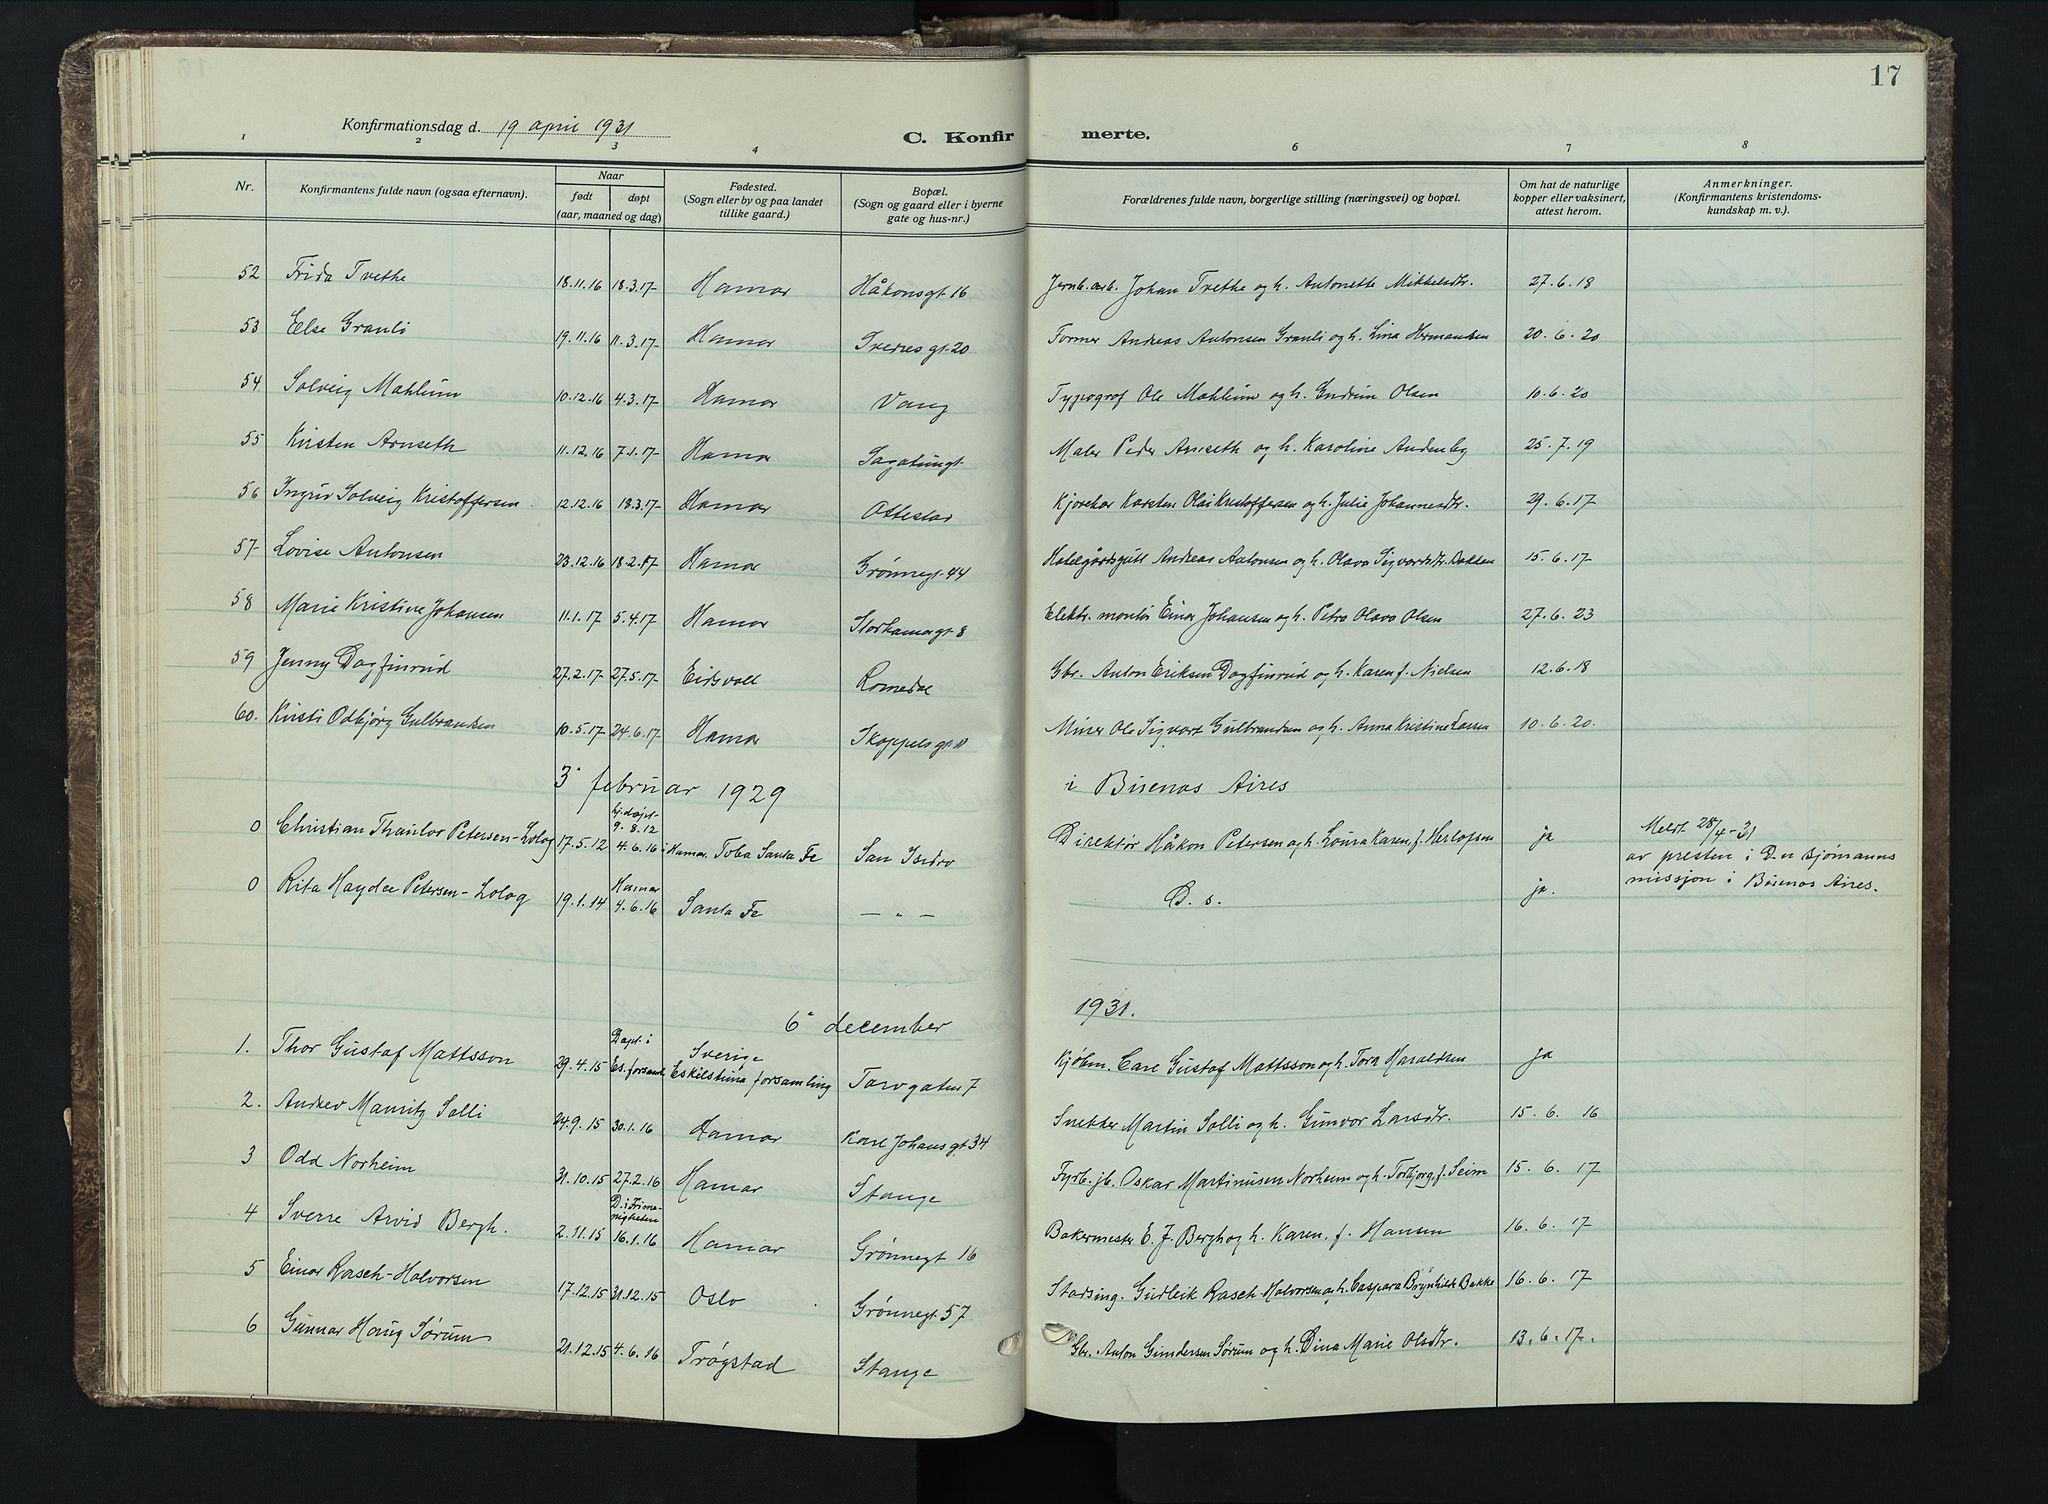 17
Konfirmationsdag d. 19 april 1931
C. Konfirmerte.
1 2 3 4 6 7 8
Nr.
Konfirmantens fulde navn (ogsaa efternavn).
Naar
født døpt
(aar, maaned og dag)
Fødested.
(Sogn eller by og paa landet
tillike gaard.)
Bopæl.
(Sogn og gaard eller i byerne
gate og hus-nr.)
Forældrenes fulde navn, borgerlige stilling (næringsvei) og bopæl.
Om hat de naturlige
kopper eller vaksinert,
attest herom.
Anmerkninger.
(Konfirmantens kristendoms-
kundskap m. v.).
52 Frida Tvethe 18.11.16 18.3.17 Hamar Håkonsgt 16 Jernb. arb. Johan Tvethe og h. Antonette Mikkelsdtr. 27.6.18
53 Else Granli 19.11.16 11.3.17 Hamar gt. 20 Former Andreas Antonsen Granli og h. Lina Hermansen 20.6.20
54 Solveig Mæhlum 10.12.16 4.3.17 Hamar Vang Typograf Ole Mæhlum og h. Gudrun Olsen 10.6.20
55 Kirsten Arnseth 11.12.16 7.1.17 Hamar Sagatungt. Maler Peder Arnseth og h. Karoline 25.7.19
56 Ingrid Solveig Kristoffersen 12.12.16 18.3.17 Hamar Ottestad Kjørekar Karsten Olai Kristoffersen og h. Julie Johannesdtr. 29.6.17
57 Lovise Antonsen 23.12.16 18.2.17 Hamar Grønnegt. 44 Hotelgårdsgutt Andreas Antonsen og h. Olava Sigvardsdtr. Bakken 15.6.17
58 Marie Kristine Johansen 11.1.17 5.4.17 Hamar Storhamargt. 8 Elektr. montør Einar Johansen og h. Petra Olava Olsen 27.6.23
59 Jenny Dagfinrud 27.2.17 27.5.17 Eidsvoll Romedal Gbr. Anton Eriksen Dagfinrud og h. Karen f. Nielsen 12.6.18
60. Kirsti Odbjørg Gulbrandsen 10.5.17 24.6.17 Hamar Skappelsgt. Murer Ole Sigvart Gulbrandsen og h. Anna Kristine Larsen 10.6.20.
3' februar 1929 i Buenos Aires
0 Christian Thaulov Petersen-Lolog 17.5.12 hj. døpt 9.8.12 4.6.16 i Hamar. Toba Santa Fe San Isidro Direktør Håkon Petersen og h. Laura Karen, f. Herlofsen ja Meldt 28/4-31
av presten i D. n. sjømanns
missjon i Buenos Aires.
0 Rita Haydee Petersen-Lolog 19.1.14 Hamar 4.6.16 Santa Fe — " — D. s. ja.
6' december 1931.
1. Thor Gustaf Mattsson 29.4.15 Døpt i Es. forsaml. Sverige Eskilstuna forsamling Torvgaten 7 Kjøbm. Carl Gustaf Mattsson og h. Tora Haraldsen ja
2. Andrev Mauritz Solli 24.9.15 30.1.16 Hamar Karl Johans gt. 34 Snekker Martin Solli og h. Gunvor Larsdtr. 15.6.16
3 Odd Norheim 31.10.15 27.2.16 Hamar Stange Fyrb. jb. Oskar Martinusen Norheim og h. Torbjørg, f. Seim 15.6.17
4 Sverre Arvid Bergh. 2.11.15 D. i Frime-
nigheten 16.1.16 Hamar Grønnegt 16 Bakermester E. J. Bergh og h. Karen, f. Hansen 16.6.17
5 Einar Rasch-Halvorsen 17.12.15 31.12.15 Oslo Grønnegt 57 Stadsing. Gudleik Rasch-Halvorsen og h. Caspara Brynhilde Bakke 16.6.17
6 Gunnar Haug Sørum 21.12.15 4.6.16 Trøgstad Stange Gbr. Anton Gundersen Sørum og h. Dina Marie Olsdtr. 13.6.17.